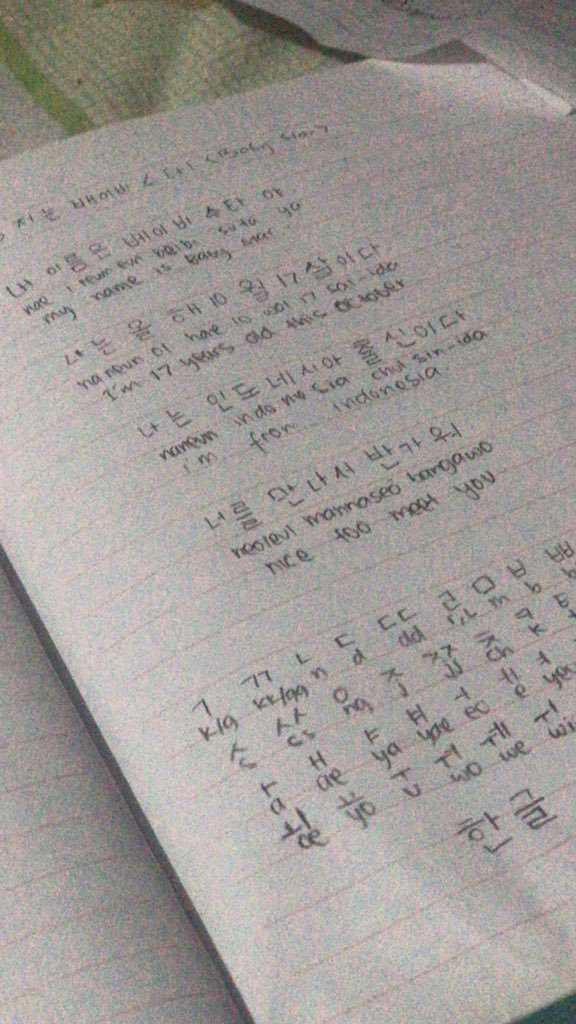 지는 베이비 스타! <Baby Star>
내 이름은 베이비 수타 야
nae i reum eun beibi suta ya
my name is baby star
나는 올 해 10 월 17 살이다
naneun ol hae 10 wol 17 sal-ida
I'm 17 years old this october
나는 인도네시아 출신이다
naneun indo ne sia chul sin-ida
i'm from indonesia.
너를 만나서 반가워
neoleul mannaseo bangawo
nice too meet you
ㄱ ㄲ ㄴ ㄷ ㄸ ㄹ ㅁ ㅂ ㅃ
k/g kk/gg n d dd r/L m b
ㅅ ㅆ ㅇ ㅈ ㅉ ㅊ ㅋ
s ss ng j jj ch k
ㅏ ㅐ ㅑ ㅒ ㅓ ㅔ ㅕ
a ae ya yae eo e yeo
ㅛ ㅜ ㅝ ㅞ ㅟ
oe yo u wo we wi
한글